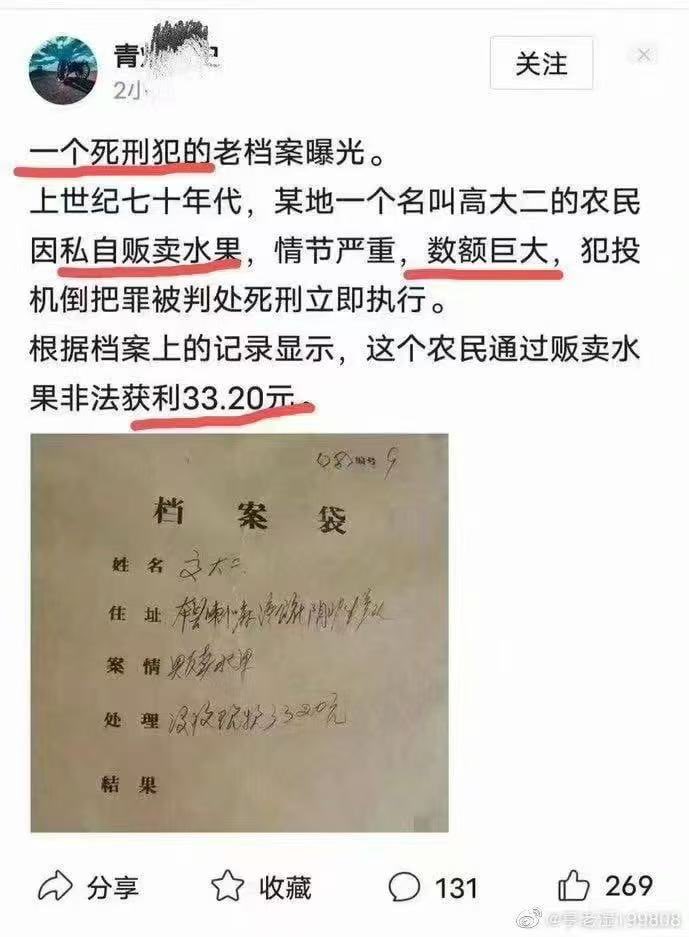 青
关注
2小
一个死刑犯的老档案曝光。
上世纪七十年代，某地一个名叫高大二的农民
因私自贩卖水果，情节严重，数额巨大，犯投
机倒把罪被判处死刑立即执行。
根据档案上的记录显示，这个农民通过贩卖水
果非法获利33.20元。
编号 9
档案袋
姓名 大二
住址
案情 贩卖水果
处理 没收现款33.20元
结果
分享 收藏 131 269
@亨老湿199808